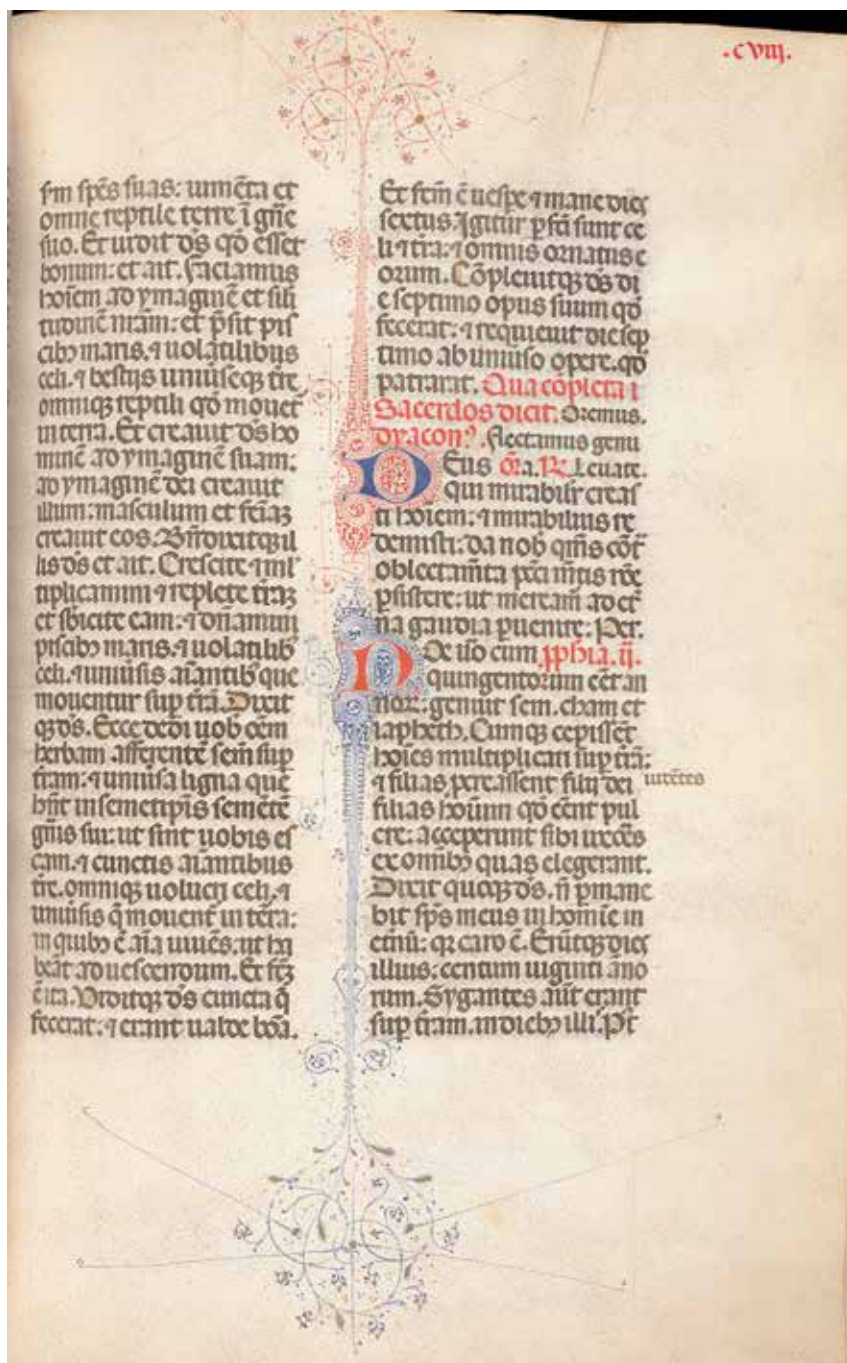 .cviij.
s̄m sp̄es suas: iumēta et
omne reptile terre ī gñe
suo. Et uidit d̄s qđ esset
bonum: et ait. Faciamus
hoīem ad ymaginē et sili
tudinē nr̄am: et p̄sit pis
cibꝫ maris. ⁊ uolatilibus
celi. ⁊ bestijs uniūseqꝫ tr̄e
omniqꝫ reptili qđ mouet᷑
in terra. Et creauit d̄s ho
minē ad ymaginē suam:
ad ymaginē dei creauit
illum: masculum et fēiaꝫ
creauit eos. Bn̄dixitqꝫ il
lis d̄s et ait. Crescite ⁊ ml̄
tiplicamini ⁊ replete tr̄aꝫ
et sb̄icite eam: ⁊ dn̄amini
piscibꝫ maris. ⁊ uolatilibꝫ
celi. ⁊ uniūsis aīantibꝫ que
mouentur sup̱ tr̄a. Dixit
qꝫ d̄s. Ecce dedi uob̄ oēm
herbam afferentē sem̄ sup̱
tr̄am: ⁊ uniūsa ligna que
hn̄t in semetip̄is semētē
gn̄is sui: ut sint uobis es
cam. ⁊ cunctis aīantibus
tr̄e. omniqꝫ uolucri celi. ⁊
uniūsis q̄ mouent᷑ in tēra:
in quibꝫ ē aīa uiuēs. ut ha
beāt ad uescendum. Et fc̄ꝫ
ē ita. Viditqꝫ d̄s cuncta q̄
fecerat: ⁊ erant ualde boā.
Et fc̄m ē uesp̱e ⁊ mane dies
sextus. Igitur p̱fc̄i sunt ce
li ⁊ tr̄a: ⁊ omnis ornatus e
orum. Cōpleuitqꝫ d̄s di
e septimo opus suum qđ
fecerat: ⁊ requieuit die sep
timo ab uniūso opere. qđ
patrarat. Qua cōpleta ī
Sacerdos dicit. Oremus.
dyacon⁹. Flectamus genu
DEus or̄a. R̷. Leuate.
qui mirabilit᷑ creas
ti hoīem: ⁊ mirabilius re
demisti: da nob̄ qm̄s cōt᷑
oblectam̄ta pc̄ci mn̄tis rōe
p̱sistere: ut meream᷑ ad et᷑
na gaudia p̱uenire: Per.
NOe ūo cum p̱phīa. ij.
quingentorum eēt an
noꝝ: genuit sem. cham et
iapheth. Cumqꝫ cepissēt
hoīes multiplicari sup̱ tr̄a:
⁊ filias p̱creassent filij dei uidētes
filias hoīum qđ eēnt pul
cre: acceperunt sibi uxōes
ex omībꝫ quas elegerant.
Dixit queqꝫ d̄s. n̄ p̱mane
bit sp̄s meus in homīe in
etn̄ū: qr caro ē. Erūtqꝫ dies
illius: centum uiginti āno
rum. Gygantes aūt erant
sup̱ tr̄am. in diebꝫ illi. Pt᷑